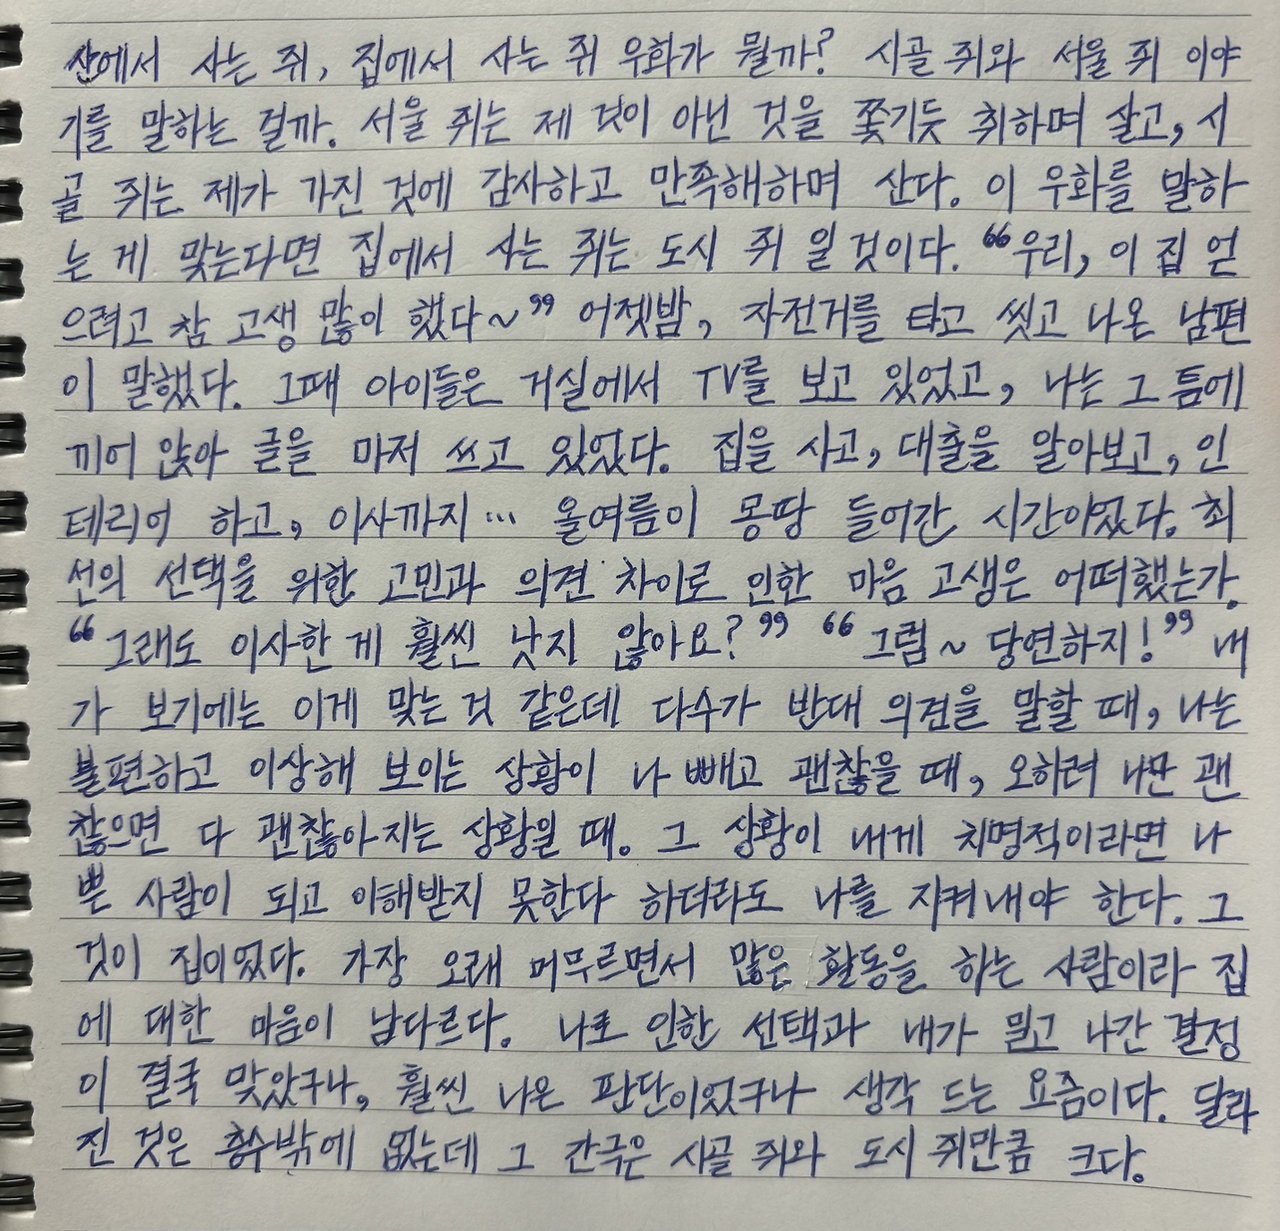 산에서 사는 쥐, 집에서 사는 쥐 우화가 뭘까? 시골 쥐와 서울 쥐 이야
기를 말하는 걸까. 서울 쥐는 제 것이 아닌 것을 쫓기듯 취하며 살고, 시
골 쥐는 제가 가진 것에 감사하고 만족해하며 산다. 이 우화를 말하
는 게 맞는다면 집에서 사는 쥐는 도시 쥐 일 것이다. “우리, 이 집 얻
으려고 참 고생 많이 했다~” 어젯밤, 자전거를 타고 씻고 나온 남편
이 말했다. 그때 아이들은 거실에서 TV를 보고 있었고, 나는 그 틈에
끼어 앉아 글을 마저 쓰고 있었다. 집을 사고, 대출을 알아보고, 인
테리어 하고, 이사까지... 올여름이 몽땅 들어간 시간이었다. 최
선의 선택을 위한 고민과 의견 차이로 인한 마음 고생은 어떠했는가.
“그래도 이사한 게 훨씬 낫지 않아요?” “그럼~ 당연하지!” 내
가 보기에는 이게 맞는 것 같은데 다수가 반대 의견을 말할 때, 나는
불편하고 이상해 보이는 상황이 나 빼고 괜찮을 때, 오히려 나만 괜
찮으면 다 괜찮아지는 상황일 때. 그 상황이 내게 치명적이라면 나
쁜 사람이 되고 이해받지 못한다 하더라도 나를 지켜내야 한다. 그
것이 집이었다. 가장 오래 머무르면서 많은 활동을 하는 사람이라 집
에 대한 마음이 남다르다. 나로 인한 선택과 내가 밀고 나간 결정
이 결국 맞았구나, 훨씬 나은 판단이었구나 생각 드는 요즘이다. 달라
진 것은 층수밖에 없는데 그 간극은 시골 쥐와 도시 쥐만큼 크다.